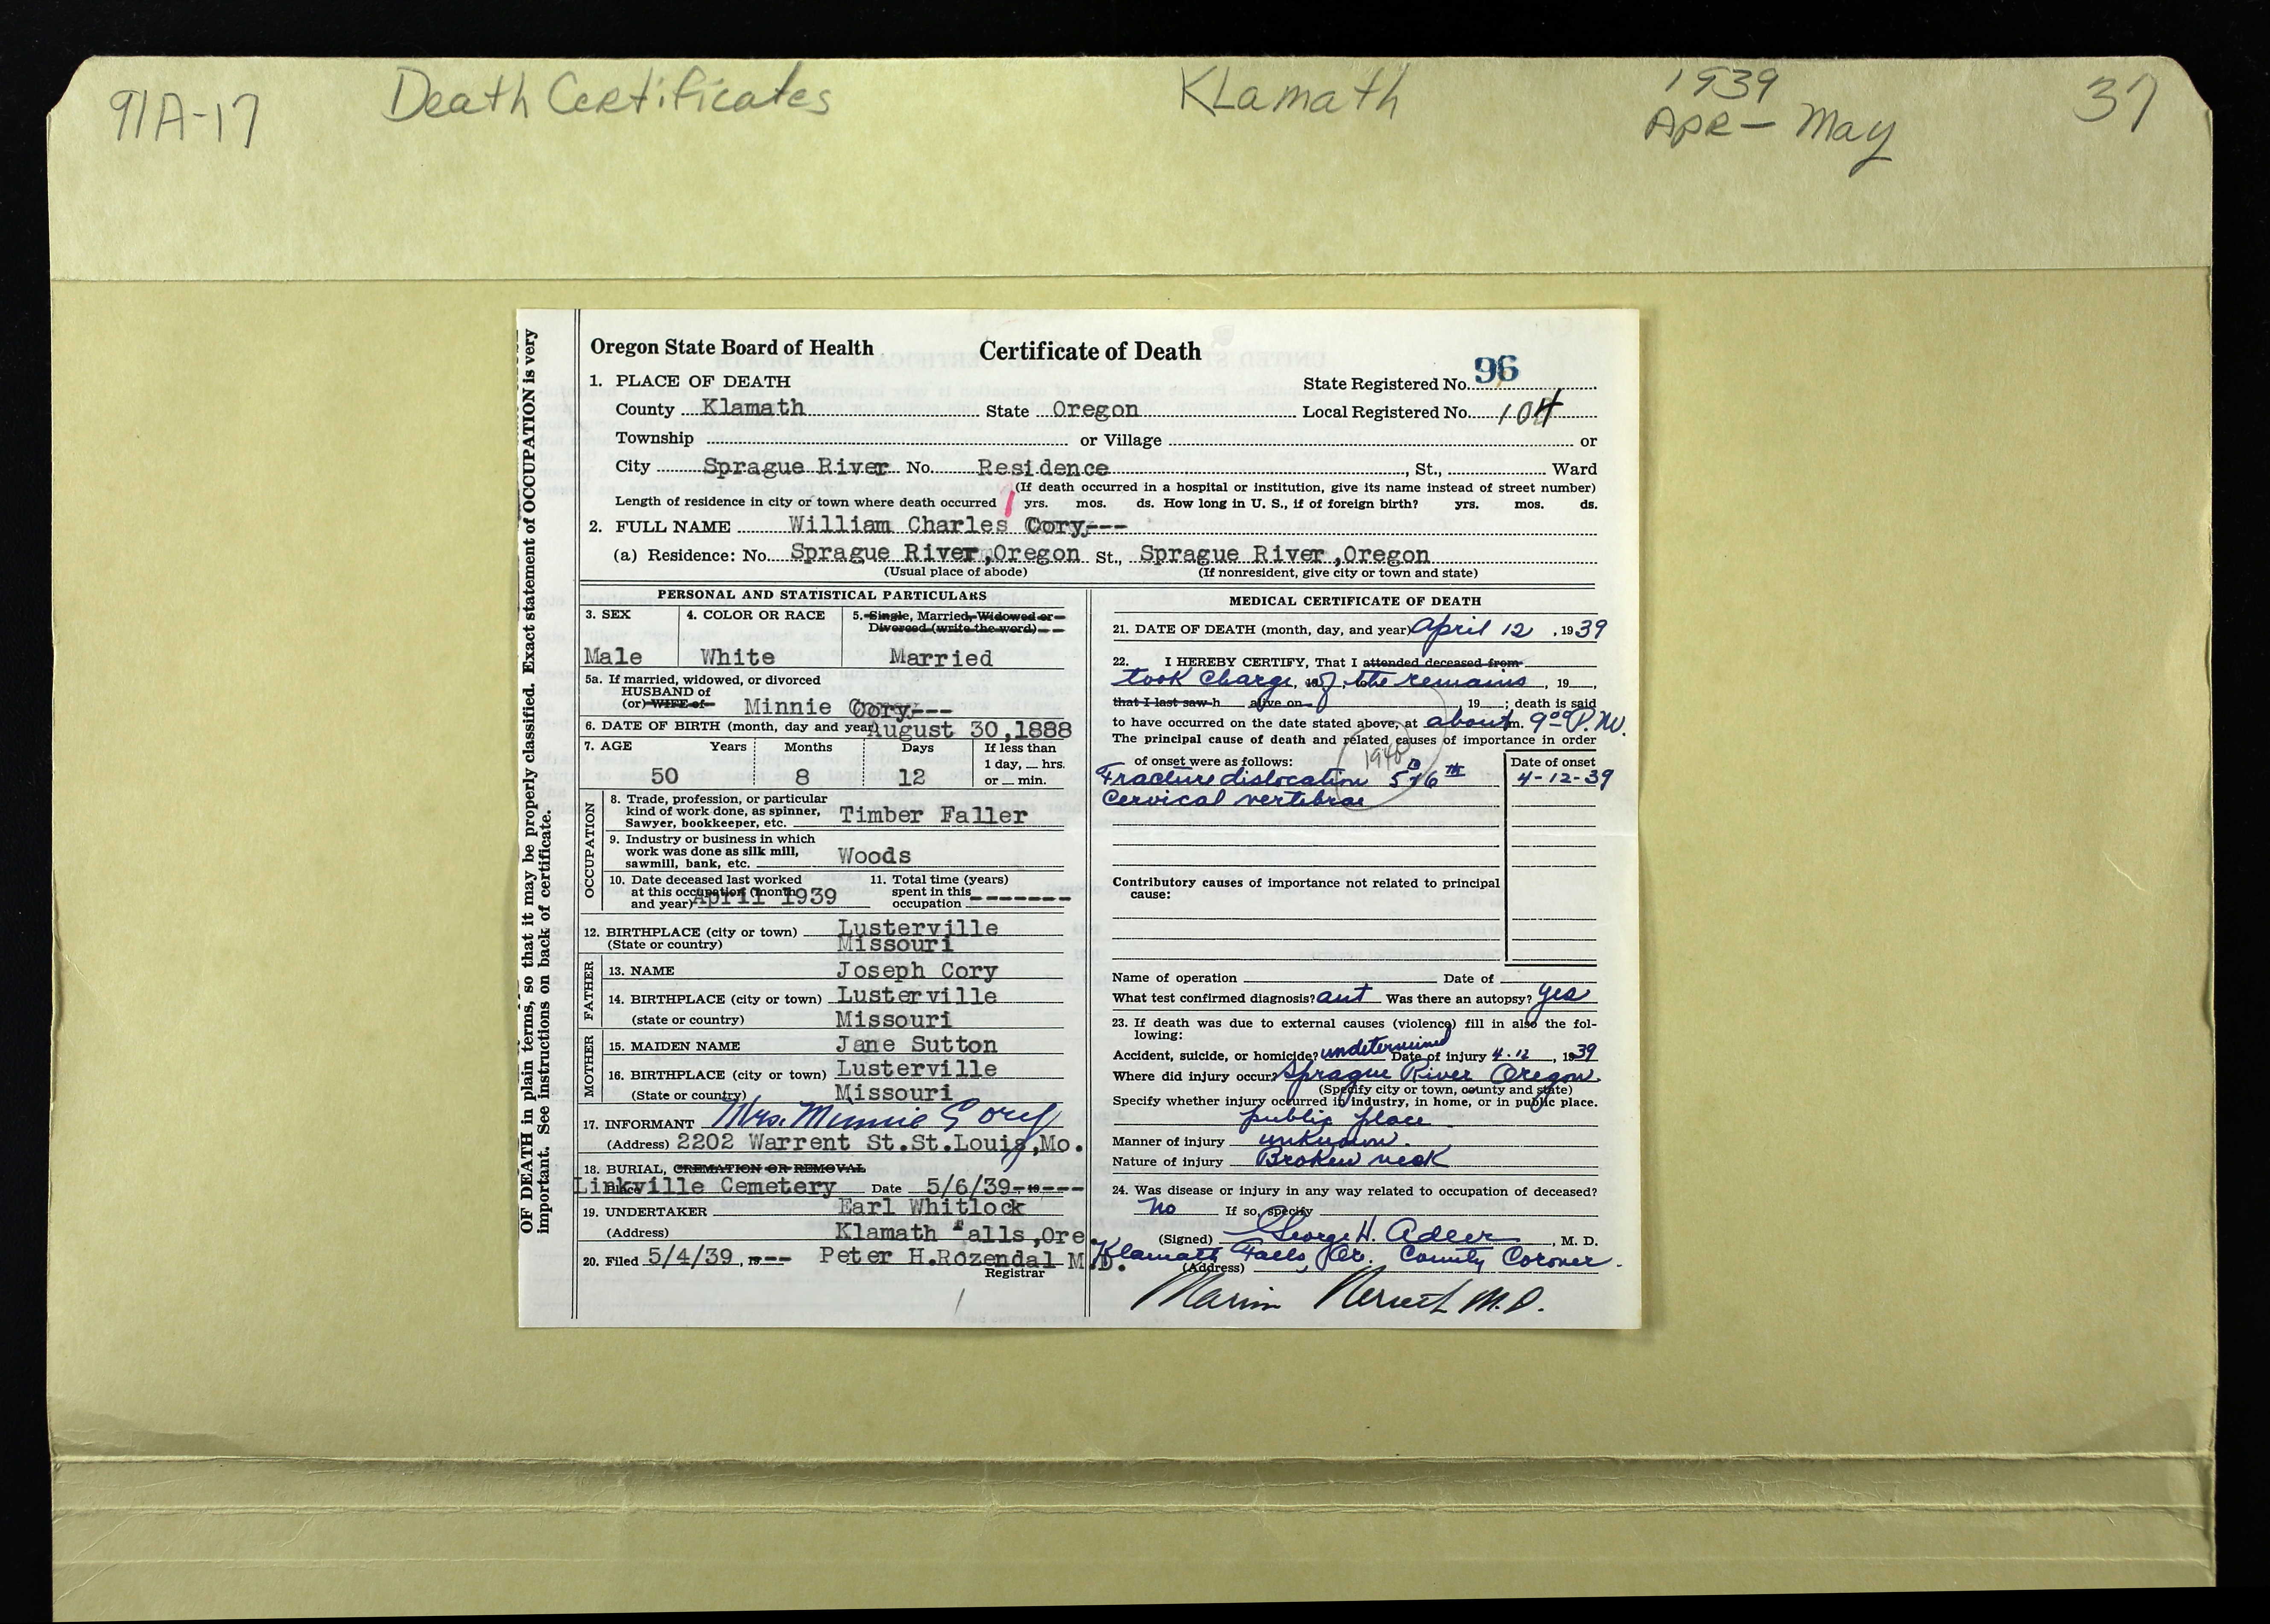 91A-17 Death Certificates Klamath 1939 Apr - May 37
OF DEATH in plain terms, so that it may be properly classified. Exact statement of OCCUPATION is very
important. See instructions on back of certificate.
Oregon State Board of Health Certificate of Death
96
1. PLACE OF DEATH State Registered No.
County Klamath State Oregon Local Registered No. 104
Township or Village or
City Sprague River No. Residence , St., Ward
(If death occurred in a hospital or institution, give its name instead of street number)
Length of residence in city or town where death occurred 1 yrs. mos. ds. How long in U. S., if of foreign birth? yrs. mos. ds.
2. FULL NAME William Charles Cory---
(a) Residence: No. Sprague River,Oregon St., Sprague River,Oregon
(Usual place of abode) (If nonresident, give city or town and state)
PERSONAL AND STATISTICAL PARTICULARS
3. SEX 4. COLOR OR RACE 5. Single, Married, Widowed or
Divorced (write the word)
Male White Married
5a. If married, widowed, or divorced
HUSBAND of
(or) WIFE of Minnie Cory---
6. DATE OF BIRTH (month, day and year) August 30,1888
7. AGE Years Months Days If less than
1 day, hrs.
50 8 12 or min.
OCCUPATION
8. Trade, profession, or particular
kind of work done, as spinner,
Sawyer, bookkeeper, etc. Timber Faller
9. Industry or business in which
work was done as silk mill,
sawmill, bank, etc. Woods
10. Date deceased last worked 11. Total time (years)
at this occupation (month spent in this
and year) April 1939 occupation -------
12. BIRTHPLACE (city or town) Lusterville
(State or country) Missouri
FATHER
13. NAME Joseph Cory
14. BIRTHPLACE (city or town) Lusterville
(state or country) Missouri
MOTHER
15. MAIDEN NAME Jane Sutton
16. BIRTHPLACE (city or town) Lusterville
(State or country) Missouri
17. INFORMANT Mrs. Minnie Cory
(Address) 2202 Warrent St.St.Louis,Mo.
18. BURIAL, CREMATION OR REMOVAL
Place Linkville Cemetery Date 5/6/39, 19----
19. UNDERTAKER Earl Whitlock
(Address) Klamath Falls,Ore.
20. Filed 5/4/39, 19--- Peter H.Rozendal M.D.
Registrar
MEDICAL CERTIFICATE OF DEATH
21. DATE OF DEATH (month, day, and year) April 12 , 1939
22. I HEREBY CERTIFY, That I attended deceased from
took charge, 19 of, to the remains , 19 ,
that I last saw h alive on 19 ; death is said
to have occurred on the date stated above, at about m. 9:00 P.M.
The principal cause of death and related causes of importance in order
of onset were as follows: 1940 Date of onset
Fracture dislocation 5 & 6th 4-12-39
Cervical vertebrae
Contributory causes of importance not related to principal
cause:
Name of operation Date of
What test confirmed diagnosis? aut Was there an autopsy? yes
23. If death was due to external causes (violence) fill in also the fol-
lowing:
Accident, suicide, or homicide? undetermined Date of injury 4-12 , 1939
Where did injury occur? Sprague River Oregon.
(Specify city or town, county and state)
Specify whether injury occurred in industry, in home, or in public place.
public place
Manner of injury unknown.
Nature of injury Broken neck
24. Was disease or injury in any way related to occupation of deceased?
No If so, specify
(Signed) George H. Adler , M. D.
(Address) Klamath Falls, Or. County Coroner.
M.D.